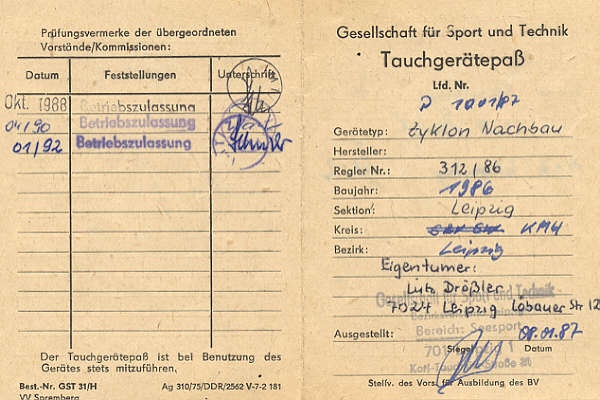 Prüfungsvermerke der übergeordneten
Vorstände/Kommissionen:
Datum Feststellungen Unterschrift
Okt. 1988 Betriebszulassung
04/90 Betriebszulassung
01/92 Betriebszulassung
Der Tauchgerätepaß ist bei Benutzung des
Gerätes stets mitzuführen.
Best.-Nr. GST 31/H Ag 310/75/DDR/2562 V-7-2 181
VV Spremberg
Gesellschaft für Sport und Technik
Tauchgerätepaß
Lfd. Nr.
D 1001/87
Gerätetyp: Zyklon Nachbau
Hersteller:
Regler Nr.: 312/86
Baujahr: 1986
Sektion: Leipzig
Kreis: KMU
Bezirk: Leipzig
Eigentümer:
Lutz Drößler
7024 Leipzig Löbauer Str 12
Gesellschaft für Sport und Technik
Bereich: Seesport
Ausgestellt: 08.01.87
701
Siegel Datum
Karl-Tauchnitz-Straße
Stellv. des Vors. für Ausbildung des BV